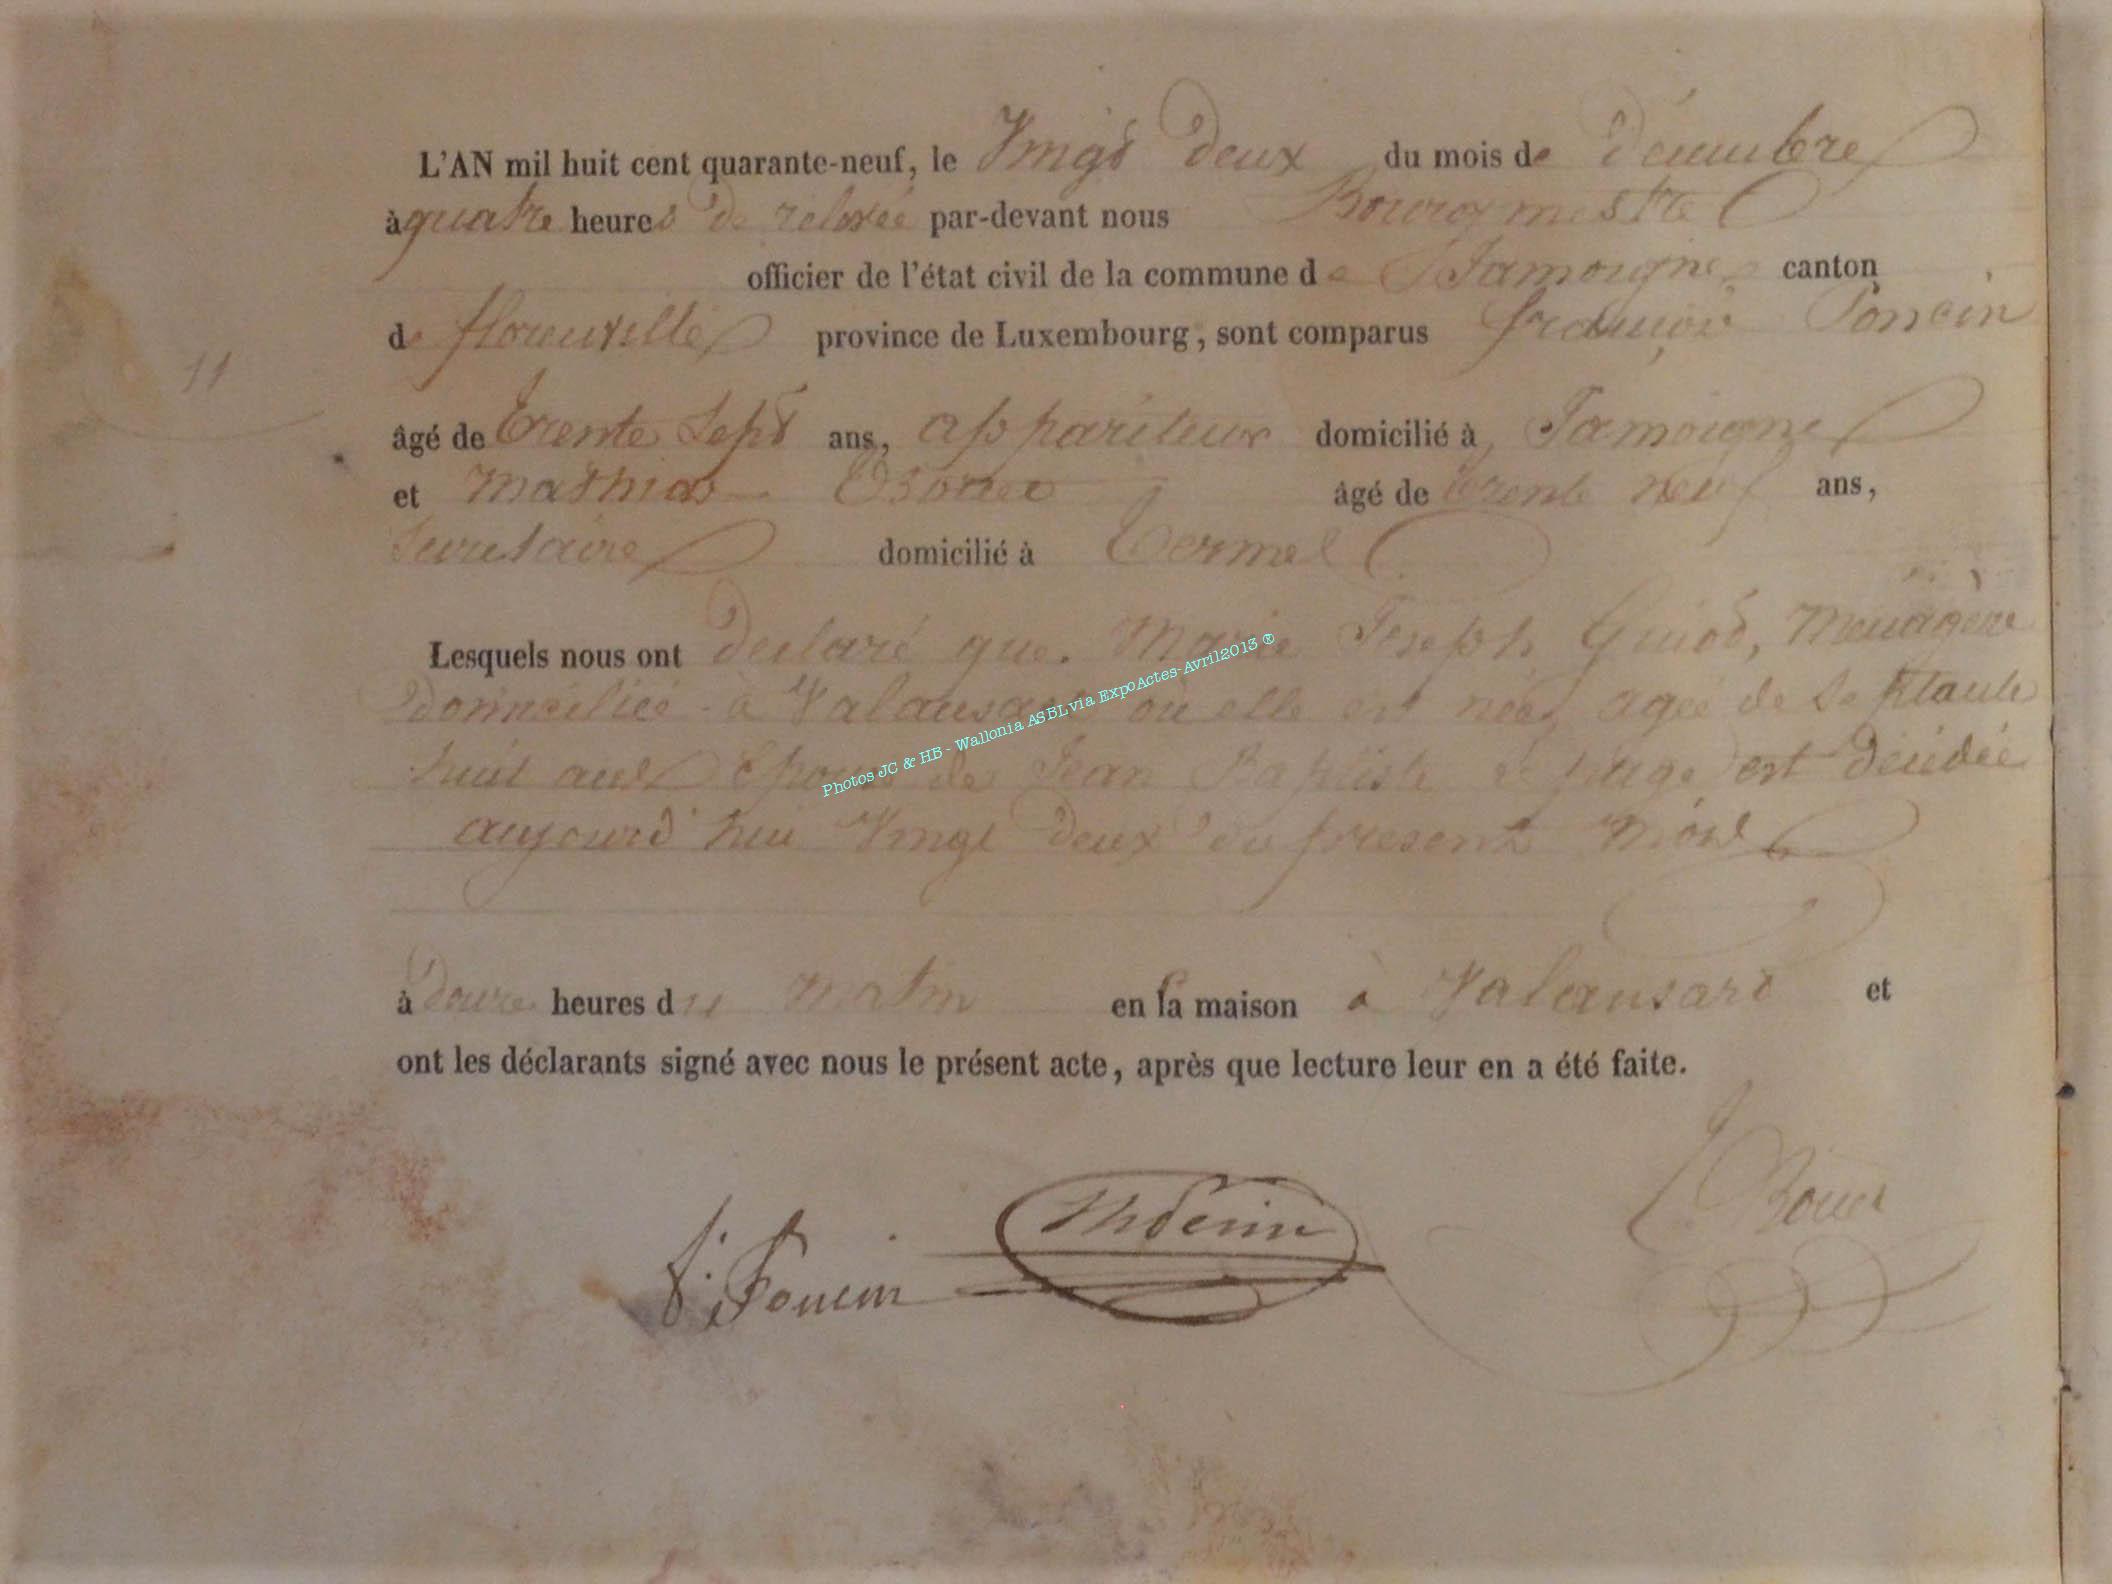 L'AN mil huit cent quarante-neuf, le Vingt deux du mois de décembre
à quatre heures de relevée par-devant nous Bourgmestre
officier de l'état civil de la commune de Jamoigne canton
de florenville province de Luxembourg, sont comparus françois Poncin
11
âgé de trente Sept ans, appariteur domicilié à Jamoigne
et Mathias âgé de trente neuf ans,
Secretaire domicilié à termes
Lesquels nous ont declaré que Marie Joseph Guiot, Menagère
domiciliée à Valansart où elle est née, agée de Septante
huit ans Epouse de Jean Baptiste est décédée
aujourd'hui Vingt deux du present Mois
à douze heures du matin en la maison à Valansart et
ont les déclarants signé avec nous le présent acte, après que lecture leur en a été faite.
f. Poncin
Photos JC & HB - Wallonia ASBL via ExpoActes-Avril2013 ®